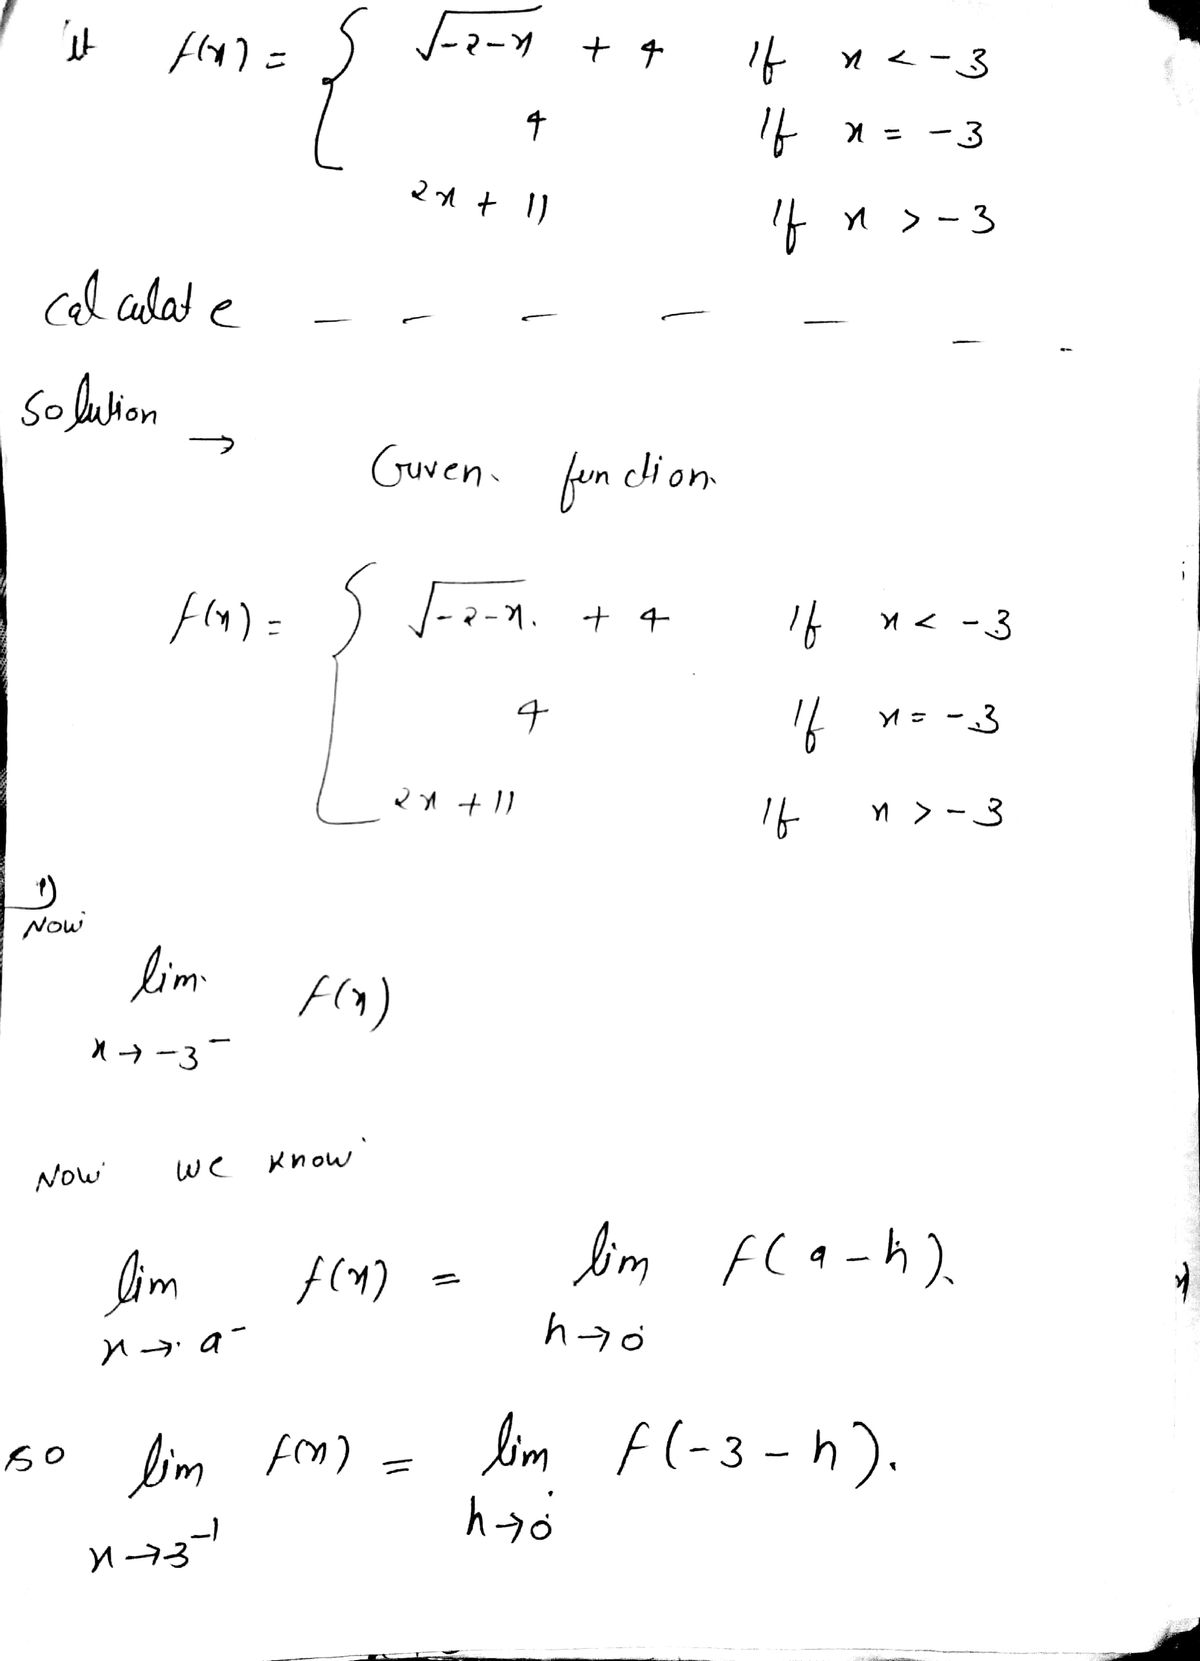 If f(x) = { √-2-x + 4 If x < -3
4 If x = -3
2x + 11 If x > -3
Calculate - - - - - - -
Solution →
Given function
f(x) = { √-2-x. + 4 If x < -3
4 If x = -3
2x + 11 If x > -3
1)
Now
lim f(x)
x → -3⁻
Now we know
lim f(x) = lim f(a-h).
x → a⁻ h → 0
so lim f(x) = lim f(-3-h).
x → 3⁻¹ h → 0